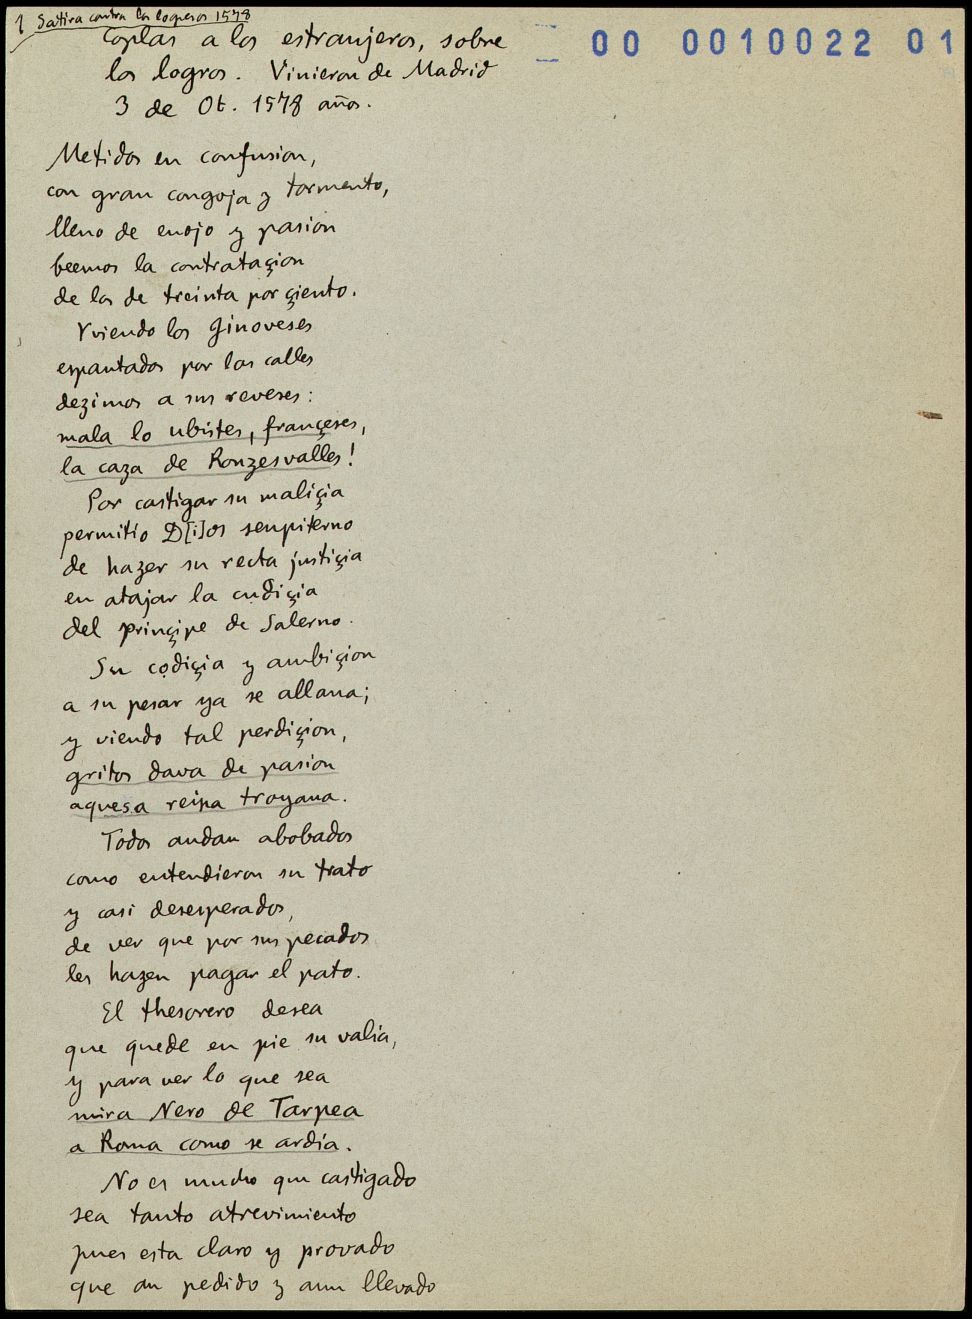 1 Satira contra los logreros 1578
Coplas a los estranjeros, sobre
los logros. Vinieron de Madrid
3 de Ot. 1578 años.
00 0010022 01
Metidos en confusion,
con gran congoja y tormento,
lleno de enojo y pasion
beemos la contrataçion
de los de treinta por çiento.
Yviendo los ginoveses
espantados por las calles
dezimos a sus reveses:
mala lo ubistes, françeses,
la caza de Ronzesvalles!
Por castigar su maliçia
permitio D[i]os senpiterno
de hazer su recta justiçia
en atajar la cudiçia
del prinçipe de Salerno.
Su codiçia y ambiçion
a su pesar ya se allana;
y viendo tal perdiçion,
gritos dava de pasion
aquesa reina troyana.
Todos andan abobados
como entendieron su trato
y casi desesperados,
de ver que por sus pecados
les hazen pagar el pato.
El thesorero desea
que quede en pie su valia,
y para ver lo que sea
mira Nero de Tarpea
a Roma como se ardia.
No es mucho que castigado
sea tanto atrevimiento
pues esta claro y provado
que an pedido y aun llevado